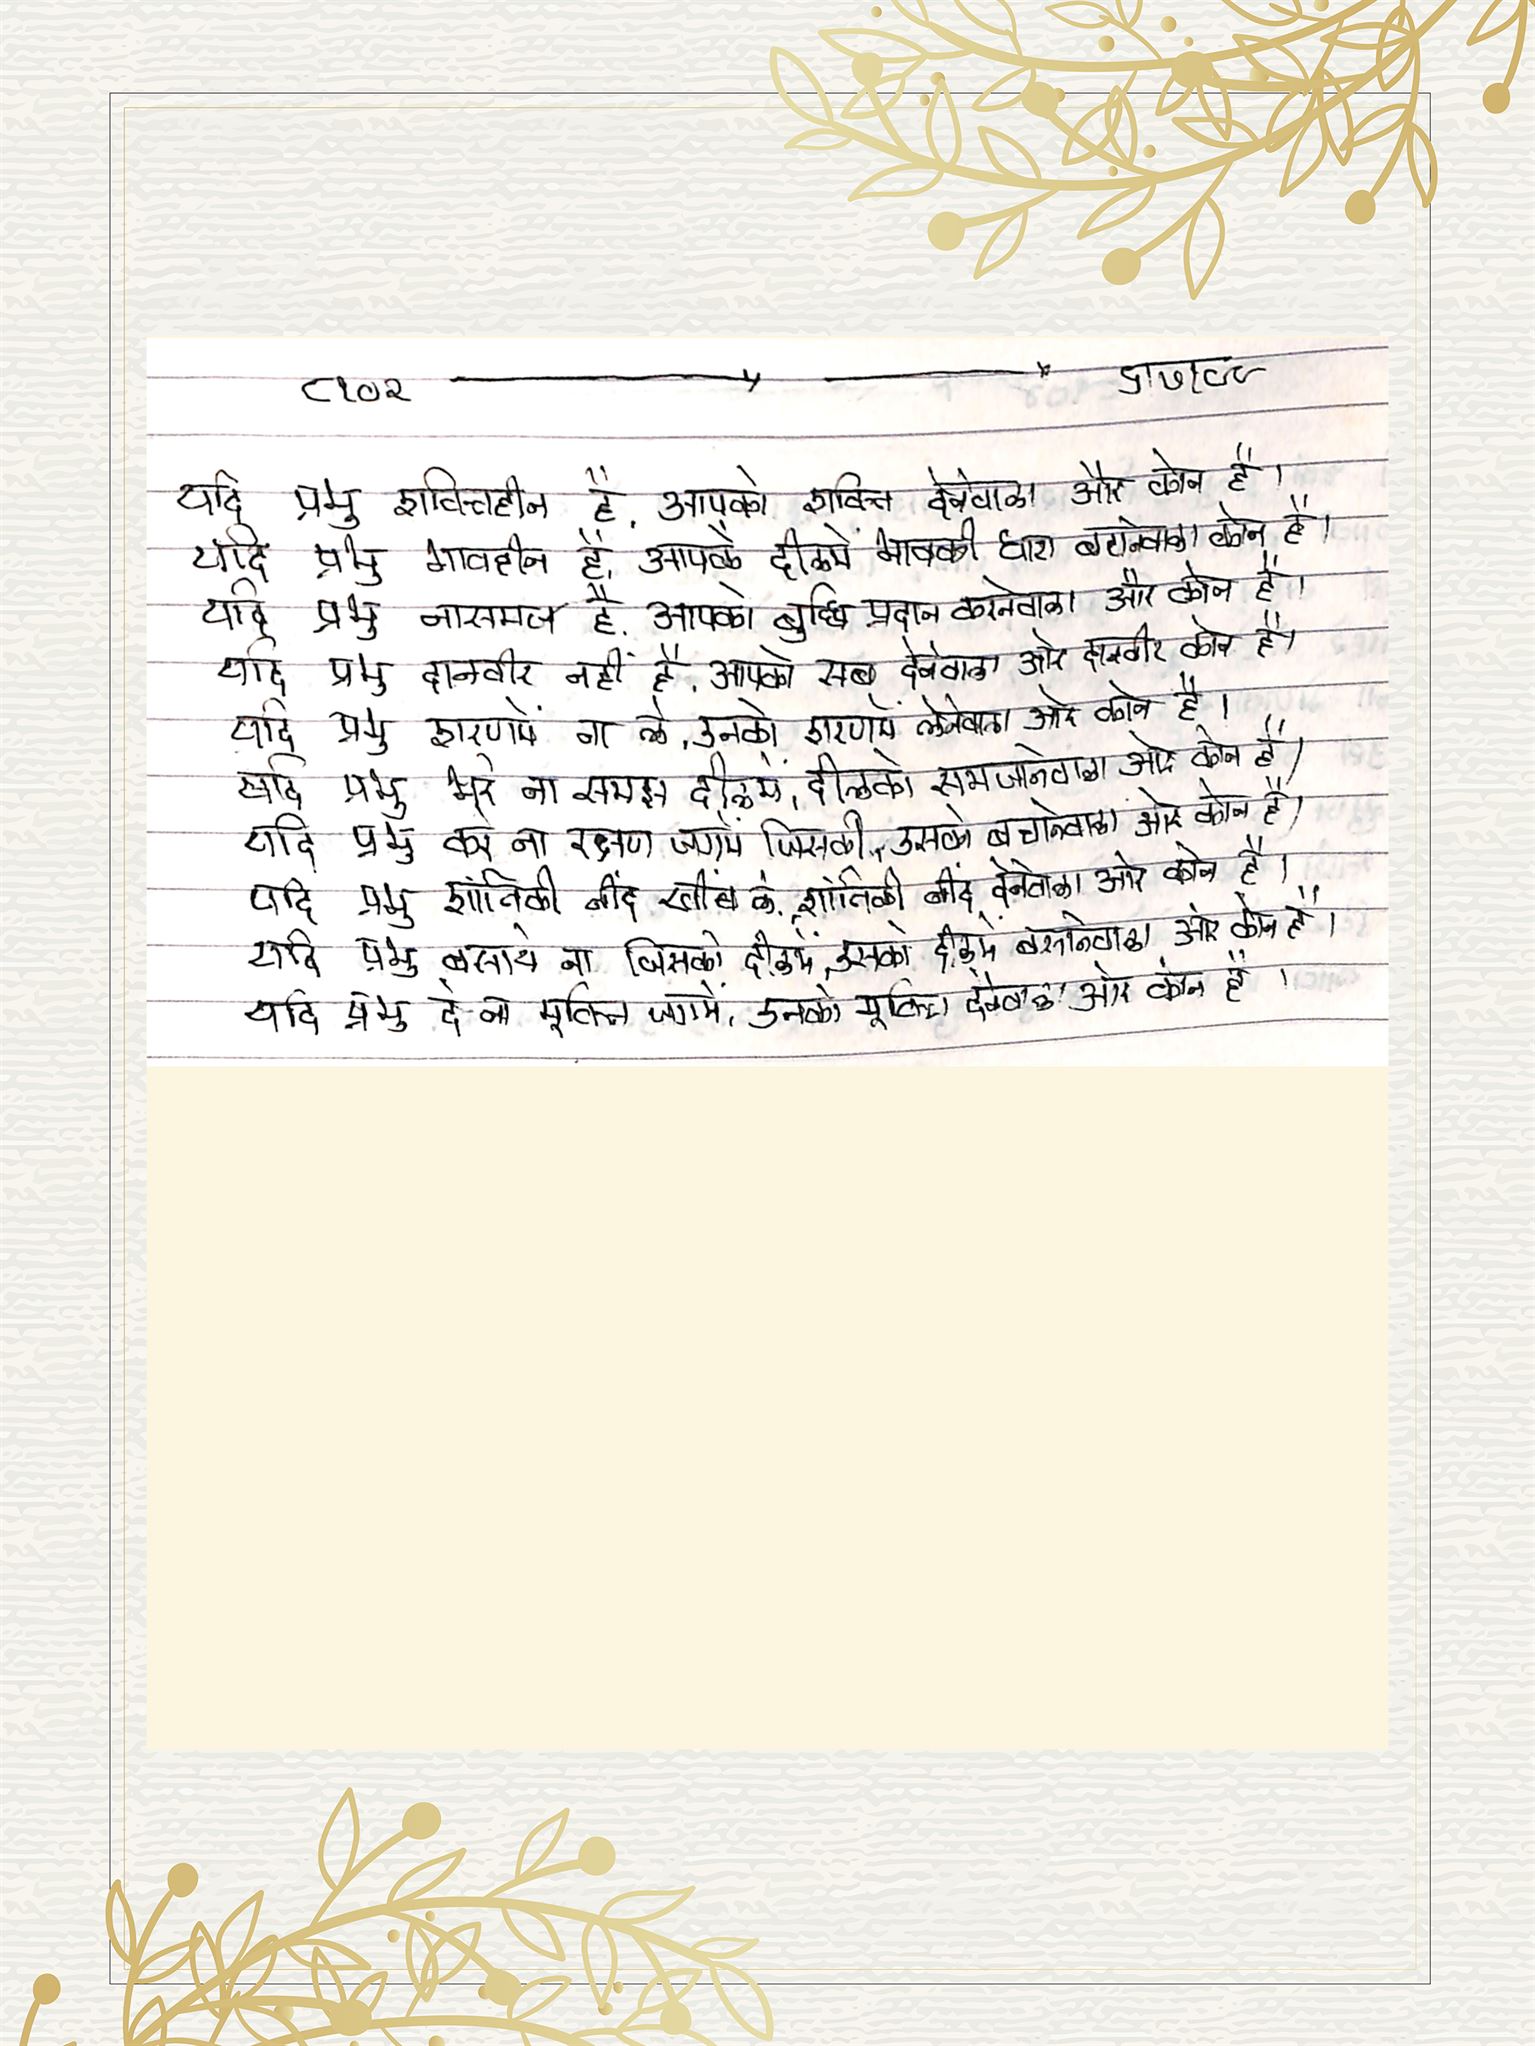 ८१०२ ५।७।८८
यदि प्रभु शक्तिहीन है, आपको शक्ति देनेवाला और कौन है ।
यदि प्रभु भावहीन है, आपके दीलमें भावकी धारा बहानेवाला कौन है ।
यदि प्रभु नासमज है, आपको बुध्धि प्रदान करनेवाला और कौन है ।
यदि प्रभु दानवीर नहीं है, आपको सब देनेवाला ओर दानवीर कोन है।
यदि प्रभु शरणमें ना ले, उनको शरणमें लेनेवाला ओर कोन है ।
यदि प्रभु भरे ना समझ दीलमें, दीलको समजानेवाला ओर कोन है।
यदि प्रभु करे ना रक्षण जगमें जिसकी, उसको बचानेवाला ओर कोन है।
यदि प्रभु शांतिकी नींद खींच ले, शांतिकी नींद देनेवाला ओर कोन है ।
यदि प्रभु बसाये ना जिसको दीलमें, उसको दीलमें बसानेवाला ओर कोन है ।
यदि प्रभु दे ना मूक्ति जगमें, उनको मूक्ति देनेवाला ओर कोन है ।